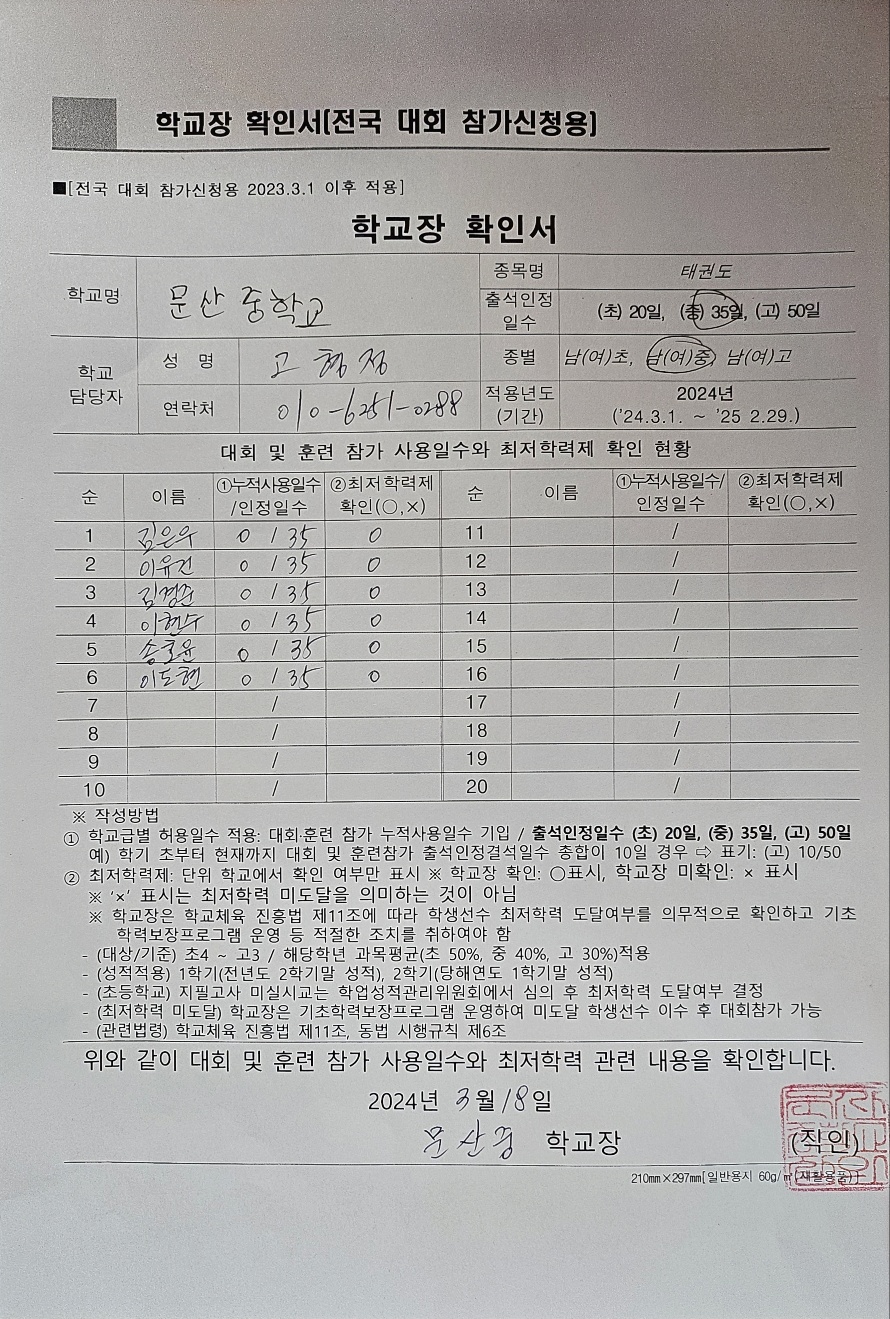 학교장 확인서(전국 대회 참가신청용)
■[전국 대회 참가신청용 2023.3.1 이후 적용]
학교장 확인서
학교명 문산중학교 종목명 태권도
출석인정일수 (초) 20일, (중) 35일, (고) 50일
학교 담당자 성 명 고형정 종별 남(여)초, 남(여)중, 남(여)고
연락처 010-6251-0288 적용년도(기간) 2024년 ('24.3.1. ~ '25 2.29.)
대회 및 훈련 참가 사용일수와 최저학력제 확인 현황
순 이름 ①누적사용일수/인정일수 ②최저학력제 확인(○,×) 순 이름 ①누적사용일수/인정일수 ②최저학력제 확인(○,×)
1 김은우 0 / 35 0 11 /
2 이유진 0 / 35 0 12 /
3 김경준 0 / 35 0 13 /
4 이현수 0 / 35 0 14 /
5 송호윤 0 / 35 0 15 /
6 이도현 0 / 35 0 16 /
7 / 17 /
8 / 18 /
9 / 19 /
10 / 20 /
※ 작성방법
① 학교급별 허용일수 적용: 대회·훈련 참가 누적사용일수 기입 / 출석인정일수 (초) 20일, (중) 35일, (고) 50일
예) 학기 초부터 현재까지 대회 및 훈련참가 출석인정결석일수 총합이 10일 경우 ⇨ 표기: (고) 10/50
② 최저학력제: 단위 학교에서 확인 여부만 표시 ※ 학교장 확인: ○표시, 학교장 미확인: × 표시
※ '×' 표시는 최저학력 미도달을 의미하는 것이 아님
※ 학교장은 학교체육 진흥법 제11조에 따라 학생선수 최저학력 도달여부를 의무적으로 확인하고 기초
학력보장프로그램 운영 등 적절한 조치를 취하여야 함
- (대상/기준) 초4 ~ 고3 / 해당학년 과목평균(초 50%, 중 40%, 고 30%)적용
- (성적적용) 1학기(전년도 2학기말 성적), 2학기(당해연도 1학기말 성적)
- (초등학교) 지필고사 미실시교는 학업성적관리위원회에서 심의 후 최저학력 도달여부 결정
- (최저학력 미도달) 학교장은 기초학력보장프로그램 운영하여 미도달 학생선수 이수 후 대회참가 가능
- (관련법령) 학교체육 진흥법 제11조, 동법 시행규칙 제6조
위와 같이 대회 및 훈련 참가 사용일수와 최저학력 관련 내용을 확인합니다.
2024년 3월 18일
문산중 학교장 (직인)
210mm×297mm[일반용지 60g/㎡(재활용품)]